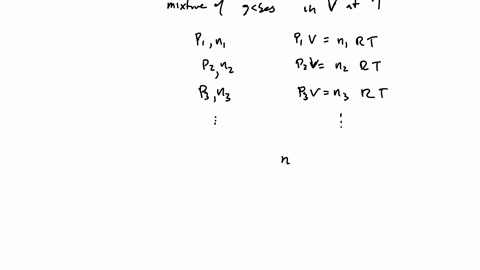 mixture of gasses in V at T
P₁, n₁ P₁ V = n₁ RT
P₂, n₂ P₂ V = n₂ RT
P₃, n₃ P₃ V = n₃ RT
⋮ ⋮
n